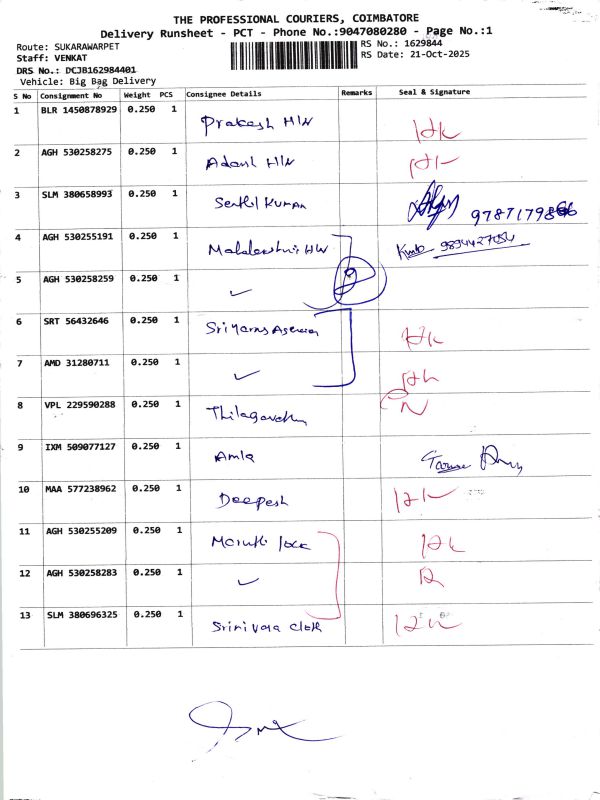 THE PROFESSIONAL COURIERS, COIMBATORE
Delivery Runsheet - PCT - Phone No.:9047080280 - Page No.:1
Route: SUKARAWARPET
RS No.: 1629844
Staff: VENKAT
RS Date: 21-Oct-2025
DRS No.: DCJB162984401
Vehicle: Big Bag Delivery
S No Consignment No Weight PCS Consignee Details Remarks Seal & Signature
1 BLR 1450878929 0.250 1 Prakash H/W
2 AGH 530258275 0.250 1 H/W
3 SLM 380658993 0.250 1 Senthil Kumar
4 AGH 530255191 0.250 1 Mahalakshmi HW 9894427054
5 AGH 530258259 0.250 1 ✓
6 SRT 56432646 0.250 1
7 AMD 31280711 0.250 1 ✓
8 VPL 229590288 0.250 1 Thilagavathy
9 IXM 509077127 0.250 1 Amla
10 MAA 577238962 0.250 1 Deepesh
11 AGH 530255209 0.250 1 Maruthi
12 AGH 530258283 0.250 1 ✓
13 SLM 380696325 0.250 1 Srinivasa Cloth